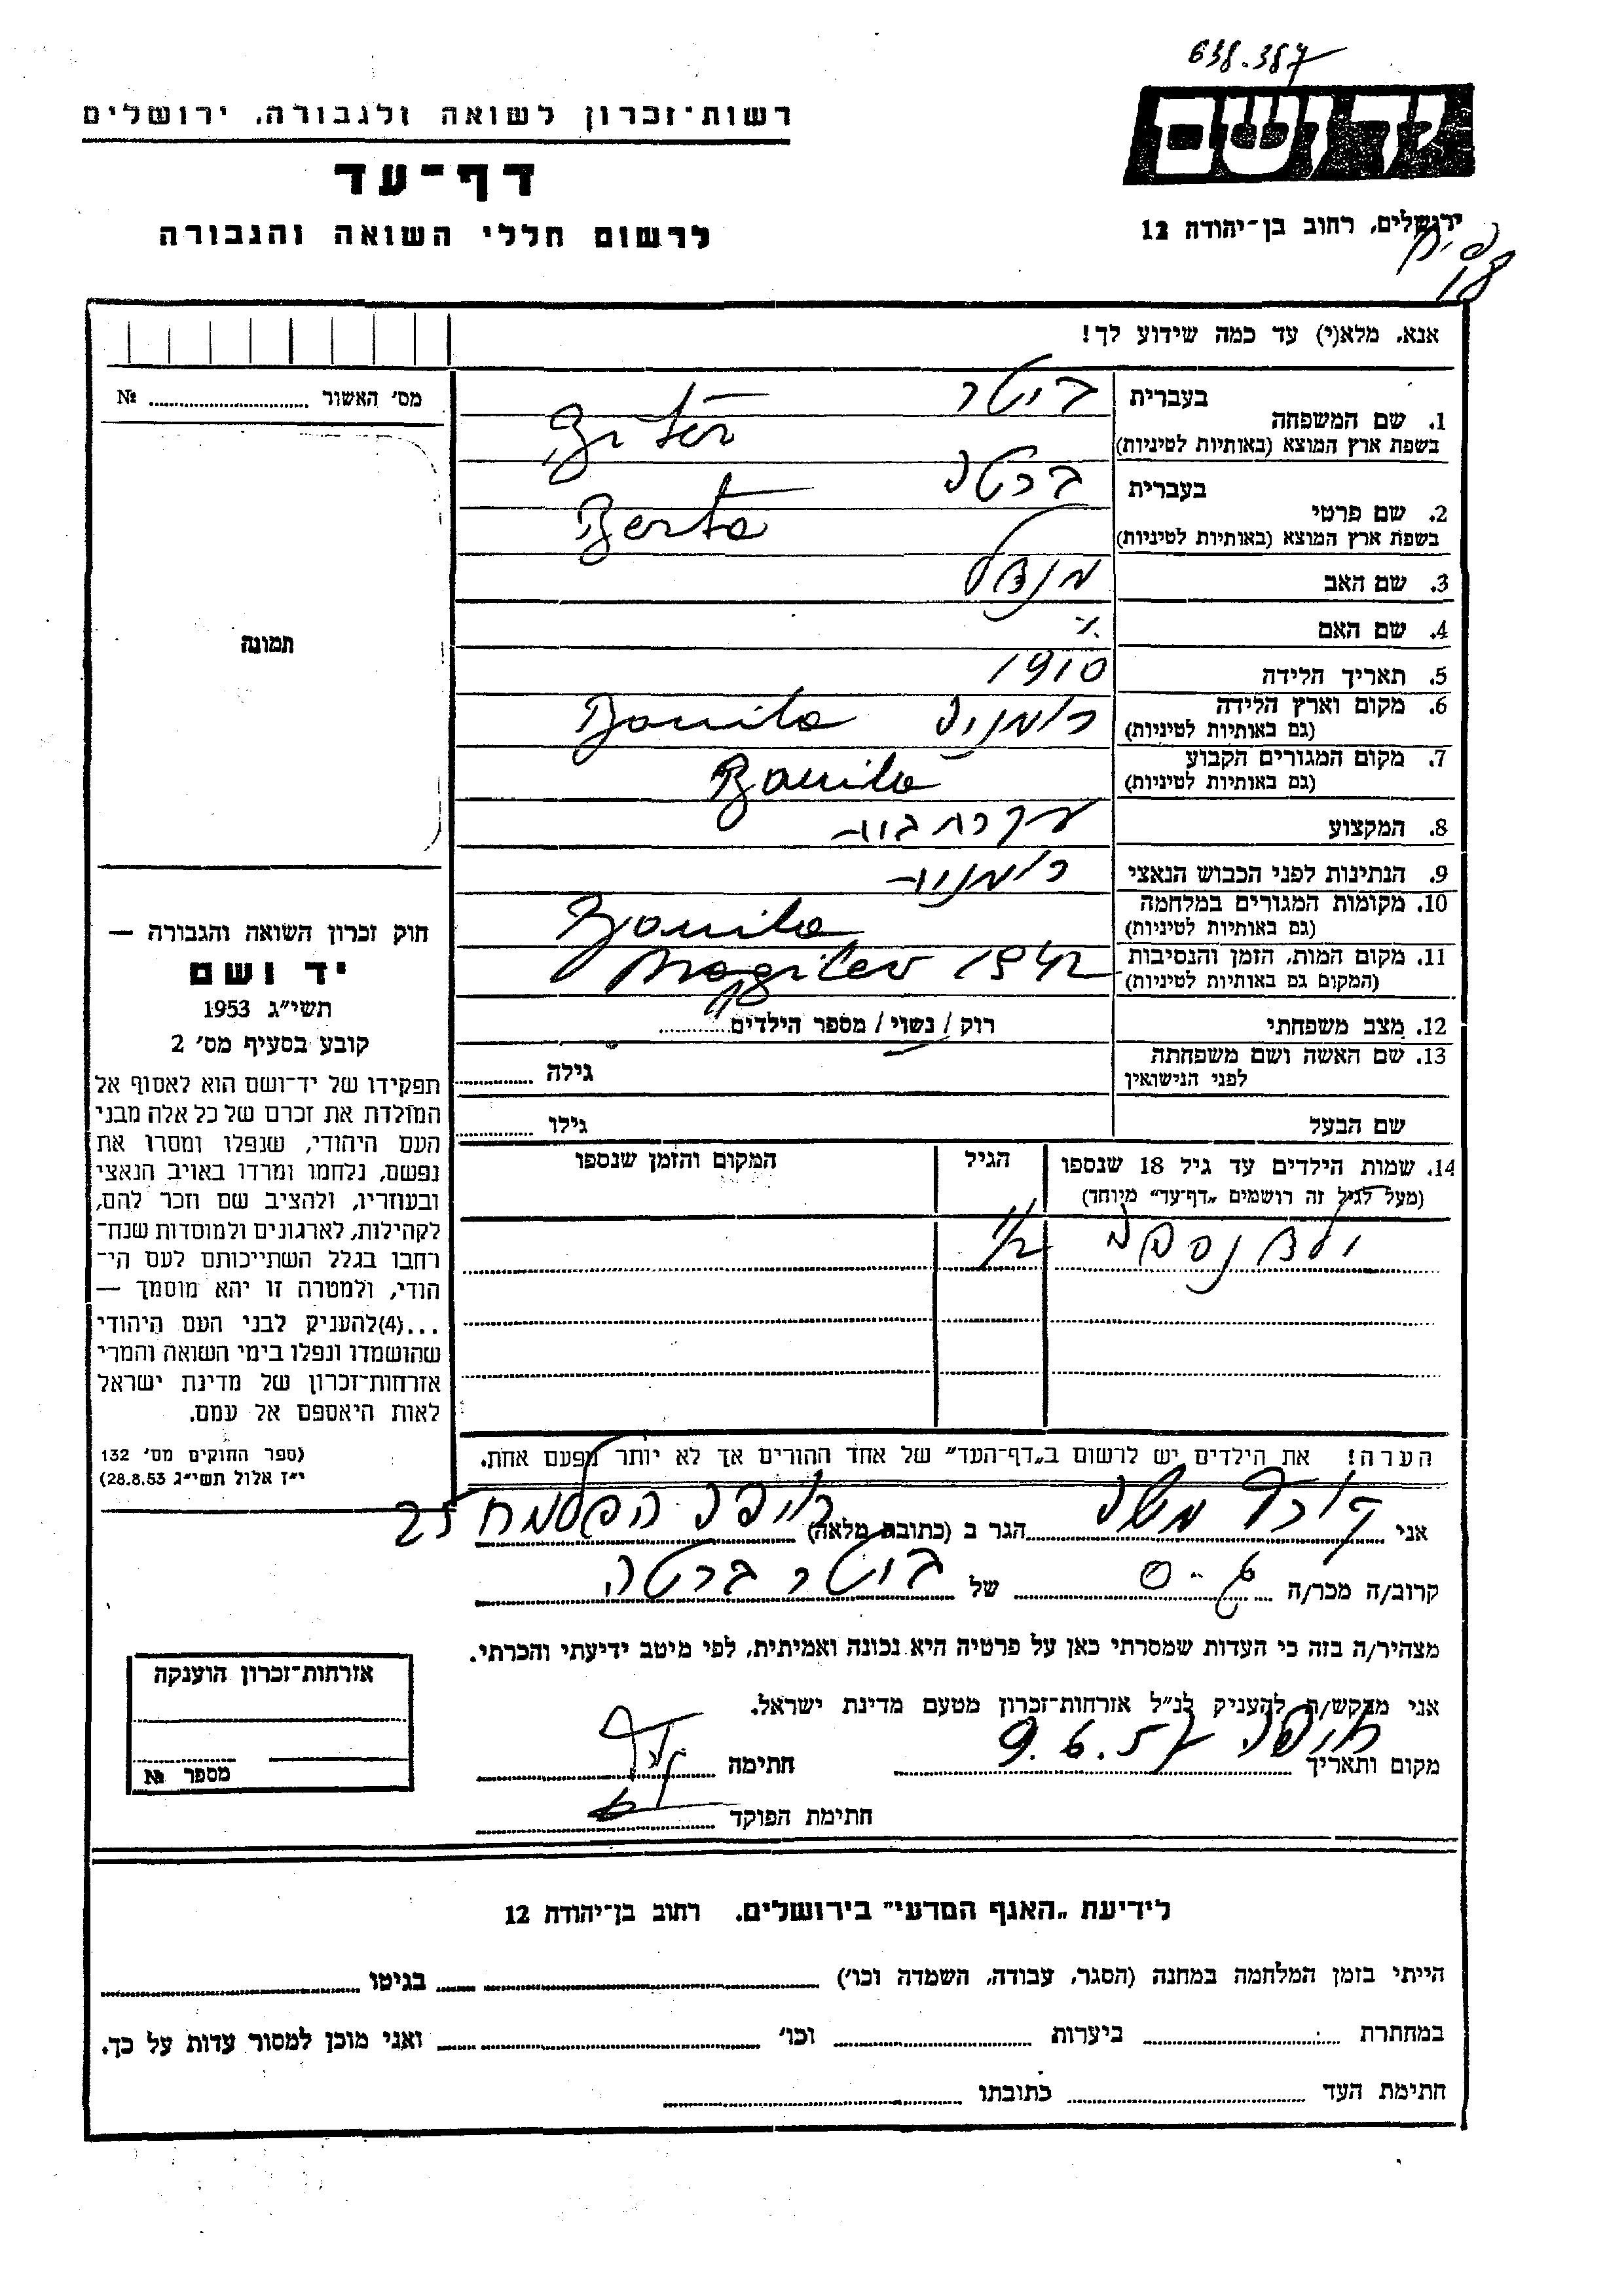 638.387
רשות-זכרון לשואה ולגבורה, ירושלים
יד ושם
דף-עד
לרשום חללי השואה והגבורה
ירושלים, רחוב בן-יהודה 12
אנא, מלא(י) עד כמה שידוע לך!
מס' האשור № ..........
1. שם המשפחה
בעברית ביטר
בשפת ארץ המוצא (באותיות לטיניות) Biter
2. שם פרטי
בעברית ברטה
בשפת ארץ המוצא (באותיות לטיניות) Berta
3. שם האב מנדל
4. שם האם
5. תאריך הלידה 1910
6. מקום וארץ הלידה רומניה Banila
(גם באותיות לטיניות)
7. מקום המגורים הקבוע Banila
(גם באותיות לטיניות)
8. המקצוע עקרת בית
9. הנתינות לפני הכבוש הנאצי רומנית
10. מקומות המגורים במלחמה Banila
(גם באותיות לטיניות)
11. מקום המות, הזמן והנסיבות Mogilev 1942
(המקום גם באותיות לטיניות)
12. מצב משפחתי רוק / נשוי / מספר הילדים..........
13. שם האשה ושם משפחתה גילה ..........
לפני הנישואין
שם הבעל גילו ..........
14. שמות הילדים עד גיל 18 שנספו הגיל המקום והזמן שנספו
(מעל לגיל זה רושמים „דף-עד" מיוחד)
ילד
הערה! את הילדים יש לרשום ב„דף-העד" של אחד ההורים אך לא יותר מפעם אחת.
תמונה
חוק זכרון השואה והגבורה —
יד ושם
תשי"ג 1953
קובע בסעיף מס' 2
תפקידו של יד-ושם הוא לאסוף אל
המולדת את זכרם של כל אלה מבני
העם היהודי, שנפלו ומסרו את
נפשם, נלחמו ומרדו באויב הנאצי
ובעוזריו, ולהציב שם וזכר להם,
לקהילות, לארגונים ולמוסדות שנח-
רחבו בגלל השתייכותם לעם הי-
הודי, ולמטרה זו יהא מוסמך —
...(4)להעניק לבני העם היהודי
שהושמדו ונפלו בימי השואה והמרי
אזרחות-זכרון של מדינת ישראל
לאות היאספם אל עמם.
(ספר החוקים מס' 132
י"ז אלול תשי"ג 28.8.53)
אני משה הגר ב (כתובת מלאה) חיפה הפלמח 25
קרוב/ה מכר/ה של ביטר ברטה
מצהיר/ה בזה כי העדות שמסרתי כאן על פרטיה היא נכונה ואמיתית, לפי מיטב ידיעתי והכרתי.
אני מבקש/ת להעניק לנ"ל אזרחות-זכרון מטעם מדינת ישראל.
מקום ותאריך חיפה 9.6.57 חתימה
חתימת הפוקד
אזרחות-זכרון הוענקה
מספר №
לידיעת „האגף המדעי" בירושלים, רחוב בן-יהודה 12
הייתי בזמן המלחמה במחנה (הסגר, עבודה, השמדה וכו') .......... בגיטו ..........
במחתרת .......... ביערות .......... וכו' .......... ואני מוכן למסור עדות על כך.
חתימת העד .......... כתובתו ..........